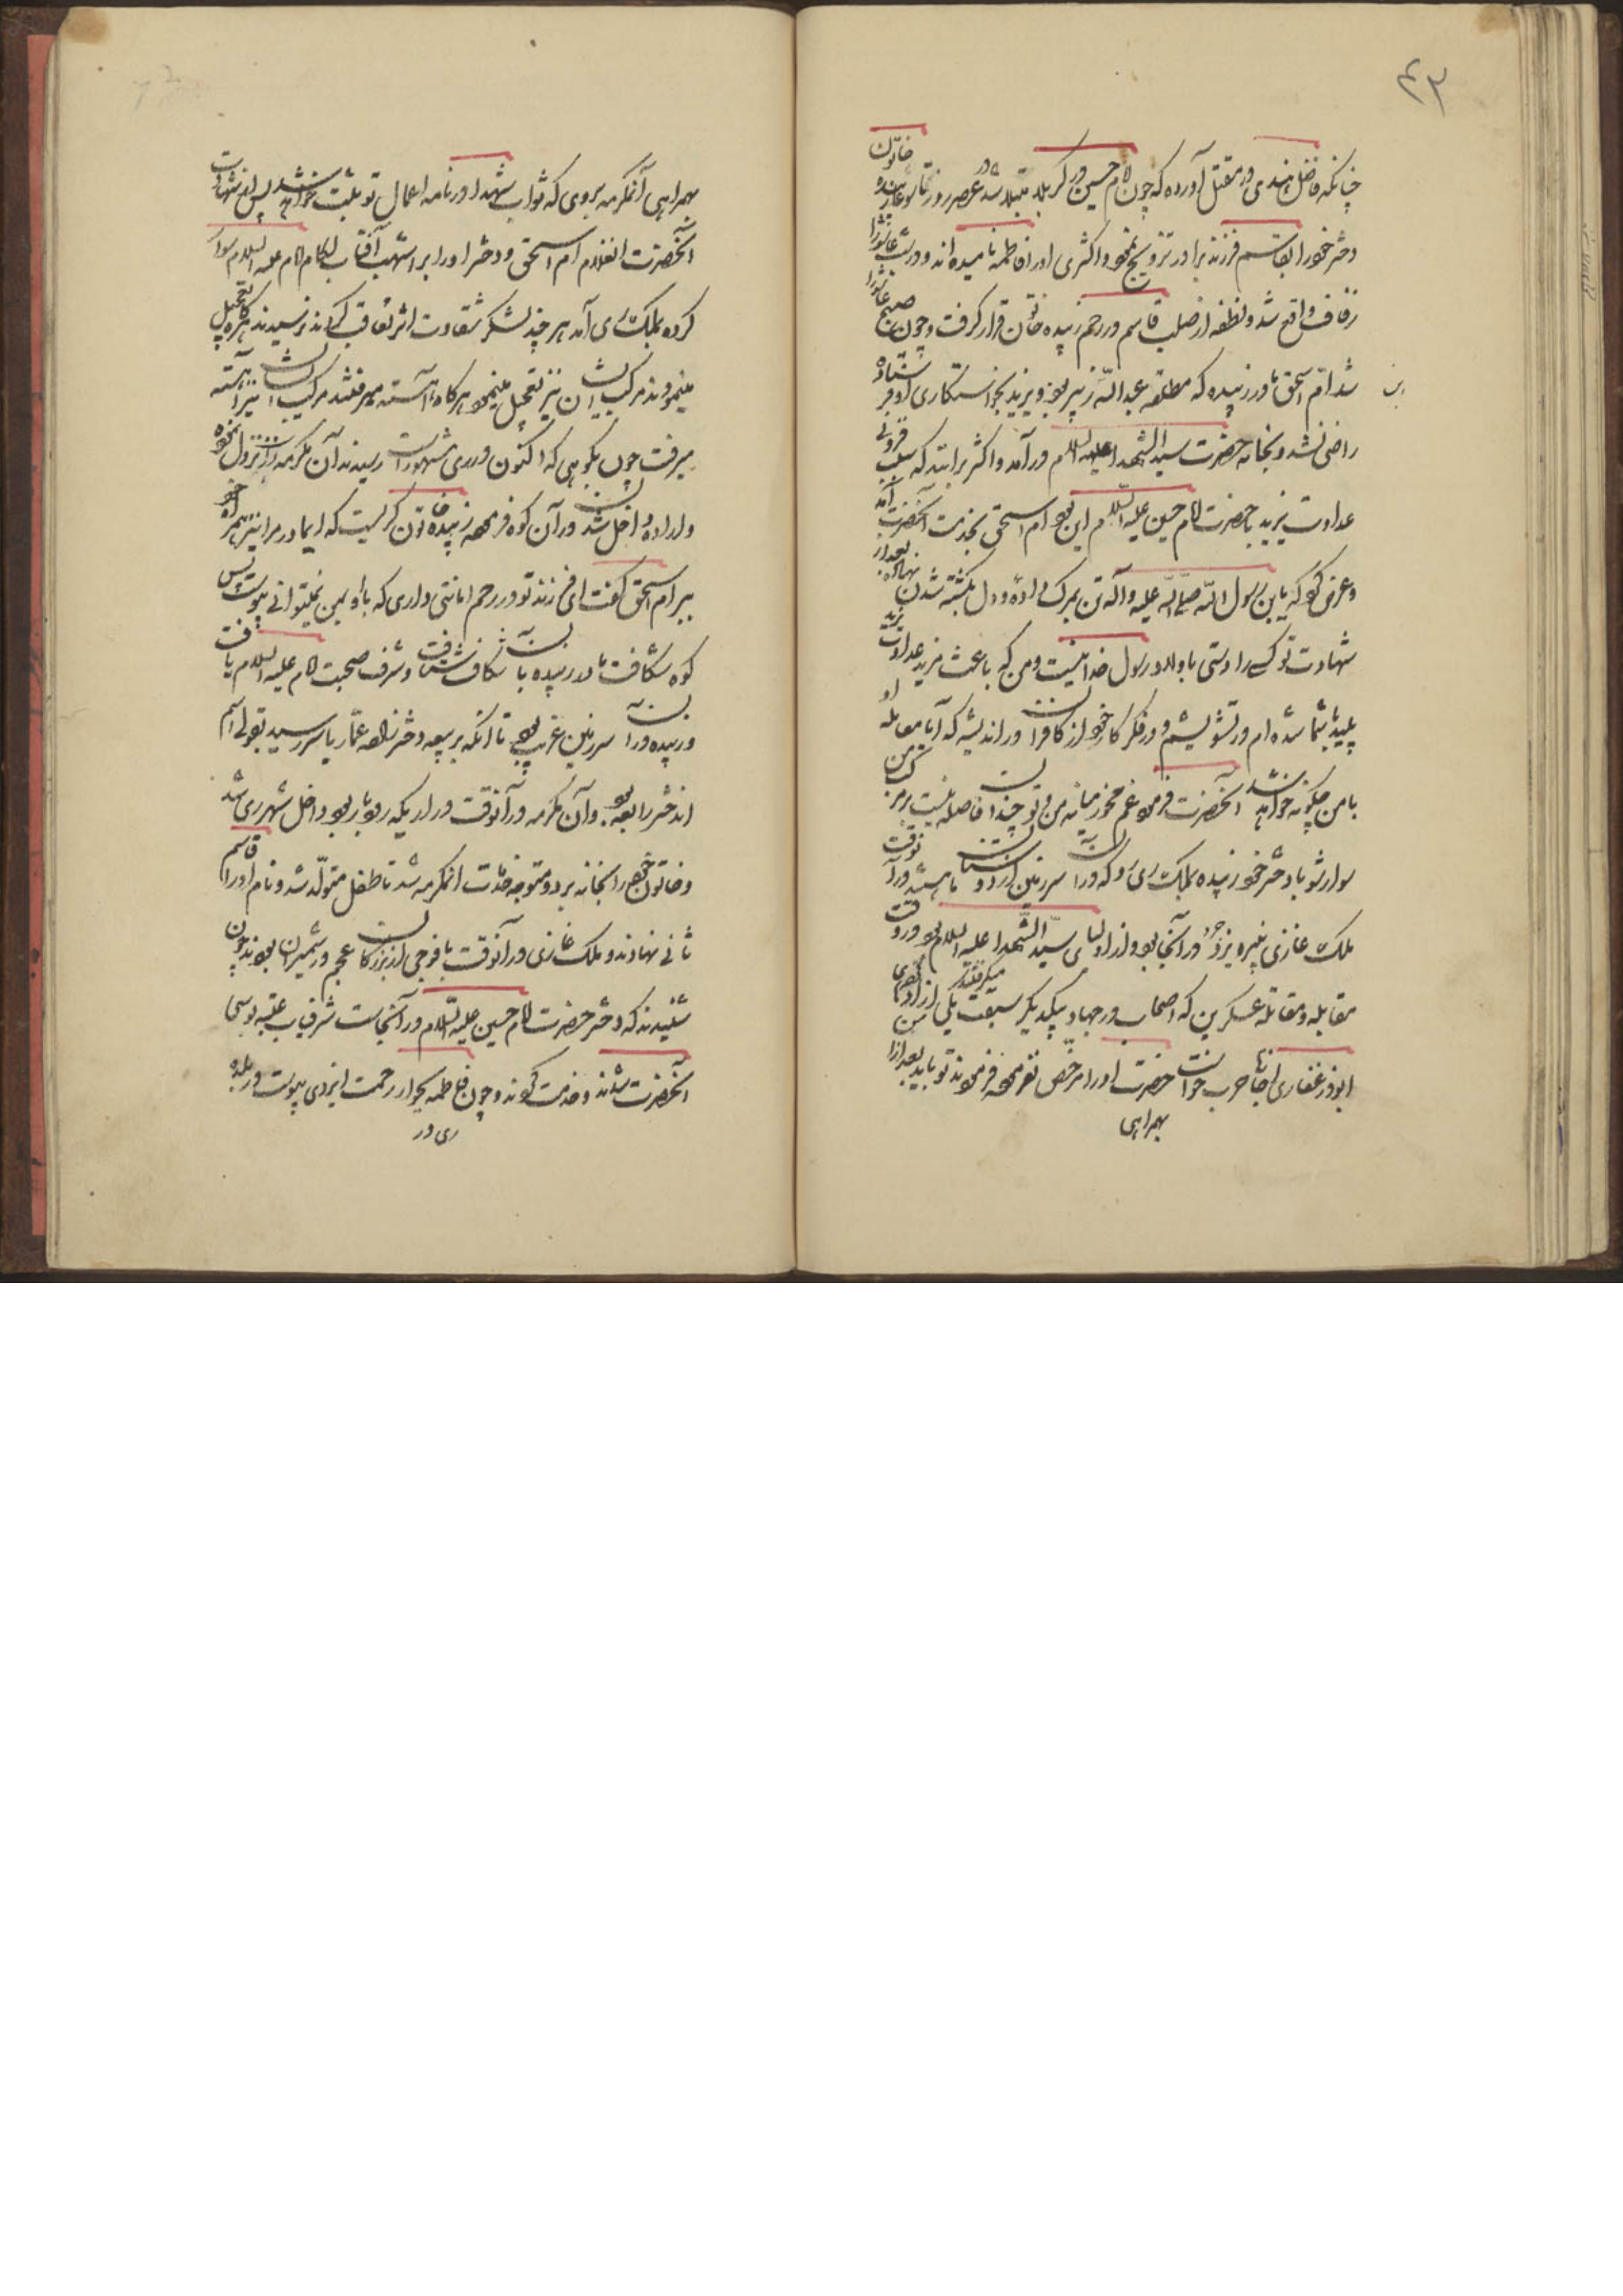 ۴۳
چنانکه فاضل هندی در مقتل آورده که چون امام حسین در کربلا مبتلا شد در عصر روز تاسوعا زبیده خاتون
دختر خود را بقاسم فرزند برادر تزویج نمود و اکثری او را فاطمه نامیده اند و در شب عاشورا
زفاف واقع شد و نطفه از صلب قاسم در رحم زبیده خاتون قرار گرفت و چون صبح عاشورا
شد ام اسحق مادر زبیده که مطلقه عبدالله زبیر بود و یزید بخواستگاری او فرستاده
راضی نشد و بخانه حضرت سید الشهدا علیه السلام در آمد و اکثر برانند که سبب فزونی
عداوت یزید با حضرت امام حسین علیه السلام این بود ام اسحق بخدمت آنحضرت آمد
و عرض کرد که یابن رسول الله صلی الله علیه و آله تن بمرگ داده و دل بکشته شدن نهاده بعد از
شهادت تو کسی را دوستی با اولاد رسول خدا نیست و من که باعث مزید عداوت یزید
پلید با شما شده ام در تشویشم و در فکر کار خود از کافران در اندیشه که آیا معامله او
با من چگونه خواهد شد آنحضرت فرمود غم مخور میانه من و تو چندان فاصله نیست بر مرکب من
سوار شو با دختر خود زبیده بملک ری رو که در آن سرزمین از دوستان ما هستند در آنوقت
ملک غازی نبیره یزدجرد در آنجا بود و از اولیای سید الشهدا علیه السلام بود در وقت
مقابله و مقاتله عسکرین که اصحاب در جهاد بیکدیگر سبقت میگرفتند یکی از اولاد
ابوذر غفاری اجازت حرب خواست حضرت او را مرخص نفرموده فرمودند تو باید بعد از من
بهمراهی
بهمراهی آنمکرمه بروی که ثواب شهدا در نامه اعمال تو ثبت خواهد شد پس از شهادت
آنحضرت آنغلام ام اسحق و دختر او را بر اشهب آفتاب لگام امام علیه السلام سوار
کرده بملک ری آمد هر چند لشکر شقاوت اثر تعاقب کردند نرسیدند هر گاه تعجیل
مینمودند مرکب ایشان نیز تعجیل مینمود هرگاه آهسته میرفتند مرکب ایشان نیز آهسته
میرفت چون بکوهی که اکنون در ری مشهور است رسیدند آن مکرمه در آن نزول نموده
و اراده داخل شدن در آن کوه فرموده زبیده خاتون گریست که ای مادر مرا نیز همراه خود
ببر ام اسحق گفت ای فرزند تو در رحم امانتی داری که با او بمن نمیتوانی پیوست پس
کوه شکافت مادر زبیده با آن شکاف شتافت و شرف صحبت امام علیه السلام یافت
و زبیده در آن سرزمین غریب بود تا آنکه بربیعه دختر زاده عمار یاسر رسید بقولی اسم
آندختر رابعه بود و آن مکرمه در آنوقت در اریکه روبار بود داخل شهر ری شد
و خاتون خود را بخانه برد و متوجه خدمت آنمکرمه شد تا طفل متولد شد و نام او را قاسم
ثانی نهادند و ملک غازی در آنوقت با فوجی از بزرگان عجم در شمیران بودند چون
شنیدند که دختر حضرت امام حسین علیه السلام در آنجاست شرفیاب عتبه بوسی
آنحضرت شدند و خدمت کردند و چون فاطمه بجوار رحمت ایزدی پیوست در بلده
ری در